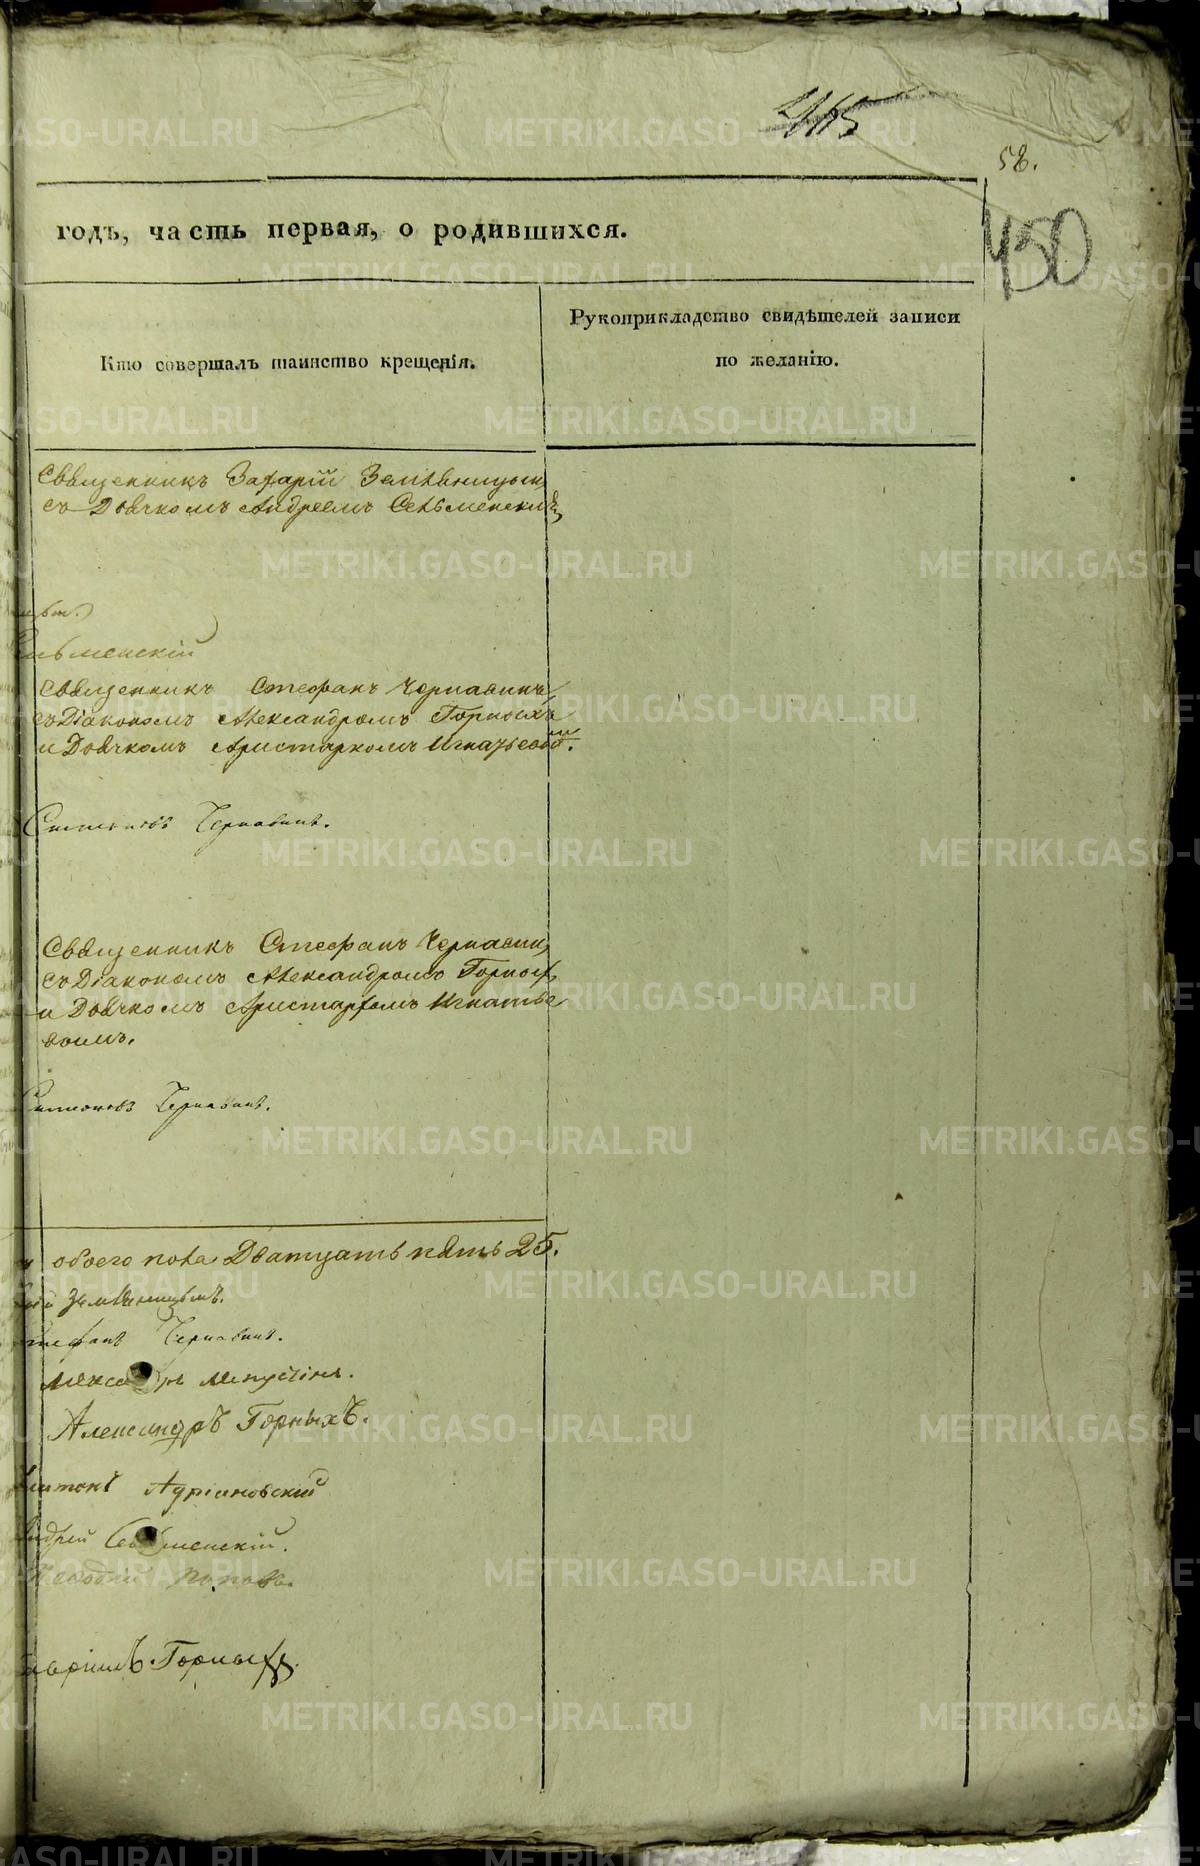 415
58.
450
годъ, часть первая, о родившихся.
Кто совершалъ таинство крещенія.
Рукоприкладство свидѣтелей записи
по желанію.
Священникъ Захарій Земляницын
съ Дьячкомъ Андреемъ Сельменским
сельменскій
Священникъ Стефанъ Чернавинъ
съ Діакономъ Александромъ Горныхъ
и Дьячкомъ Аристархомъ Игнатьевым.
Чернавинъ.
Священникъ Стефанъ Чернавин
съ Діакономъ Александромъ Горных
и Дьячкомъ Аристархомъ Игнатье
вымъ.
Чернавинъ.
и обоего пола Дватцать пять 25.
Земляницынъ.
Стефанъ Чернавинъ.
Александръ Горныхъ.
Адріановскій
Андрей Сельменскій.
Меѳодій Поповъ.
Гавріилъ Горныхъ.
METRIKI.GASO-URAL.RU